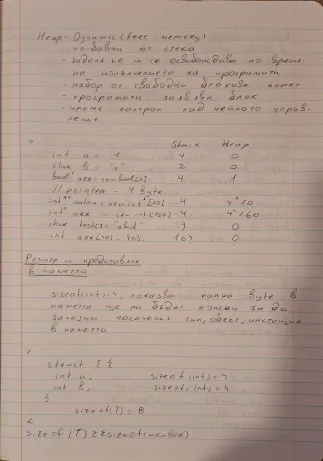 Heap - Dynamic (free memory)
- по-бавна от стека
- заделя се и се освобождава по време
на изпълнението на програмата
- набор от свободни блокове памет
- програмата заявява блок
- имаме контрол над нейното управ-
ление
Stack Heap
int a = 1 4 0
char b = 'a' 2 0
bool* arr = new bool[1] 4 1
// pointer - 4 byte
int** matrix = new int*[10] 4 4*10
int* = new int[160] 4 4*160
char test[] = 9 0
int 164 0
Размер и представяне
в паметта
sizeof(int)=4, показва колко byte в
паметта ще ни бъдат нужни за да
запазим посочения тип, обект, инстанция
в паметта
struct T {
int a, sizeof(int)=4
int b, sizeof(int)=4
}
sizeof(T) = 8
sizeof(T) ≥ Σsizeof(member)